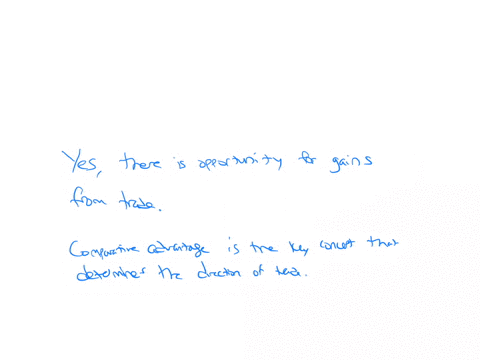 Yes, there is opportunity for gains
from trade.
Comparative advantage is the key concept that
determines the direction of trade.